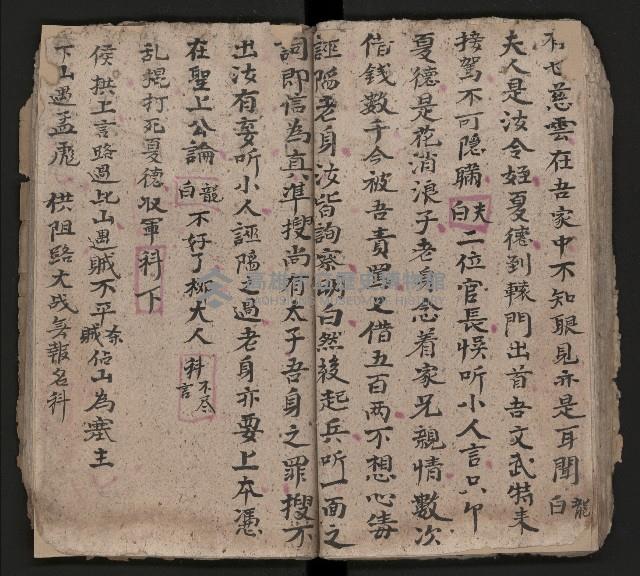 和也慈雲在吾家中不知眼見亦是耳聞 龍白
夫人是汝令姪夏德到轅門出首吾文武特来
接駕不可隱瞞 夫白 二位官長悞听小人言只卬
夏德是花消浪子老身念着家兄親情數次
借錢数于今被吾責罵又借五百两不想心毒
誣陷老身汝皆詢察明白然後起兵听一面之
詞即信為真準搜尚有太子吾身之罪搜不
出汝有妄听小人誣陷過老身亦要上本憑
在聖上公論 龍白 不好了柳大人 科不尽言
乱棍打死夏德收軍 科下
侯拱上言路過比山遇賊不平 東賊佔山為寨主
下山遇孟彪 供阻路大战 報名科
高雄市立歷史博物館
KAOHSIUNG MUSEUM OF HISTORY